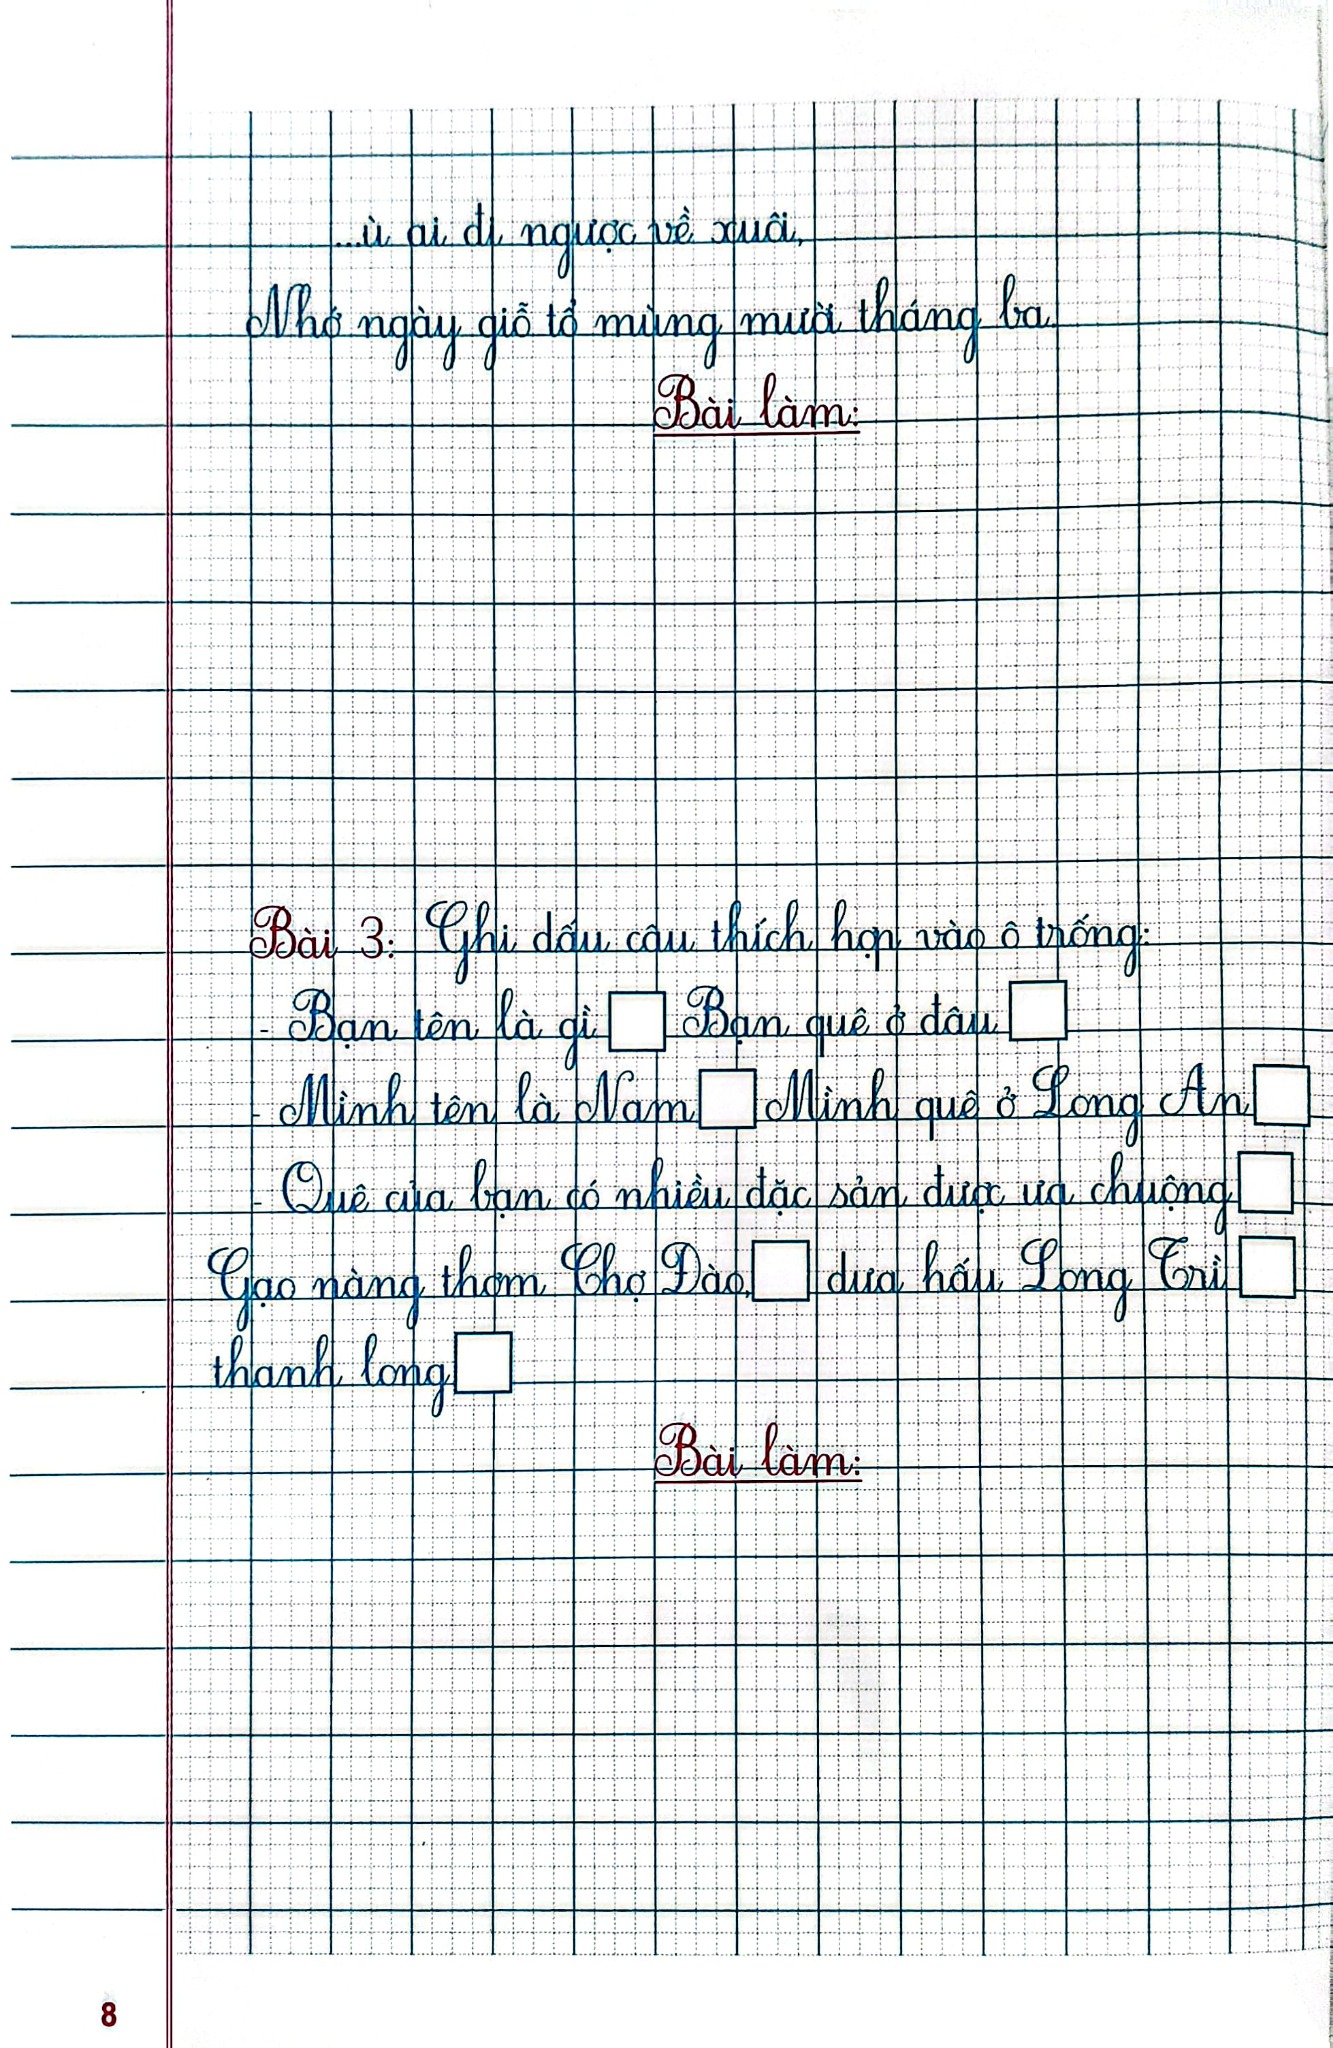 ...ù ai đi ngược về xuôi,
Nhớ ngày giỗ tổ mùng mười tháng ba.
Bài làm:
Bài 3: Ghi dấu câu thích hợp vào ô trống:
- Bạn tên là gì □ Bạn quê ở đâu □
- Mình tên là Nam □ Mình quê ở Long An □
- Quê của bạn có nhiều đặc sản được ưa chuộng □
Gạo nàng thơm Chợ Đào, □ dưa hấu Long Trì □
thanh long □
Bài làm:
8